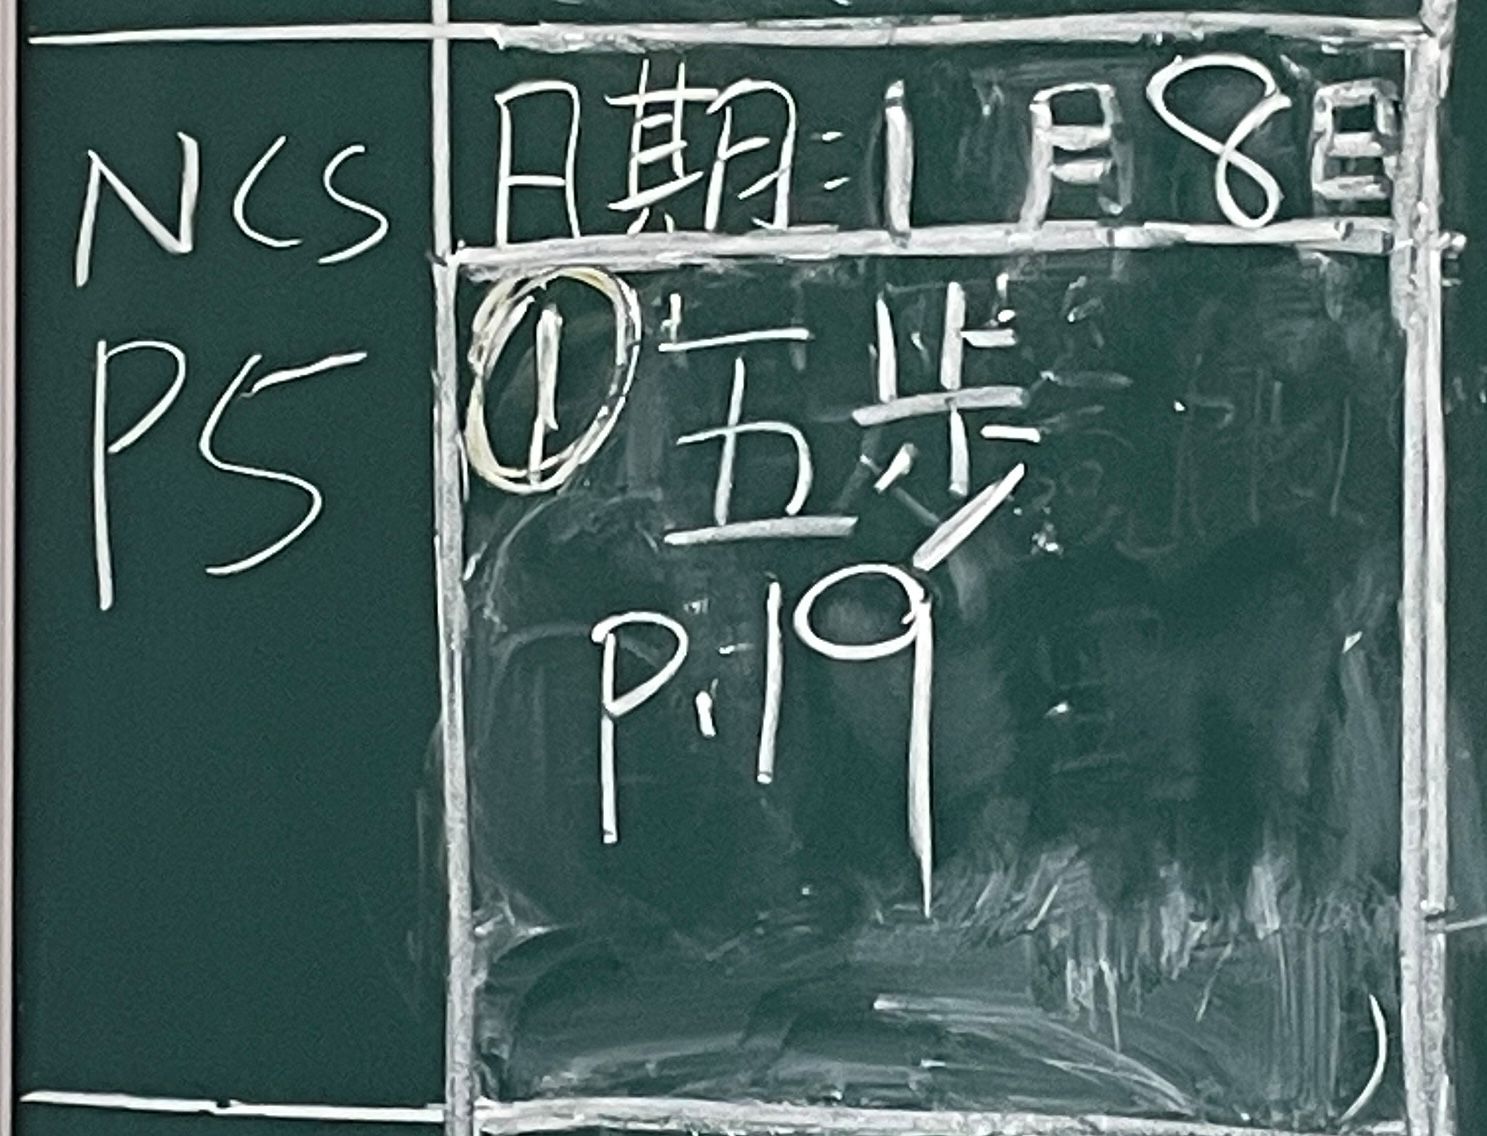 NCS
P5
日期：1月8日
① 五步
P.19